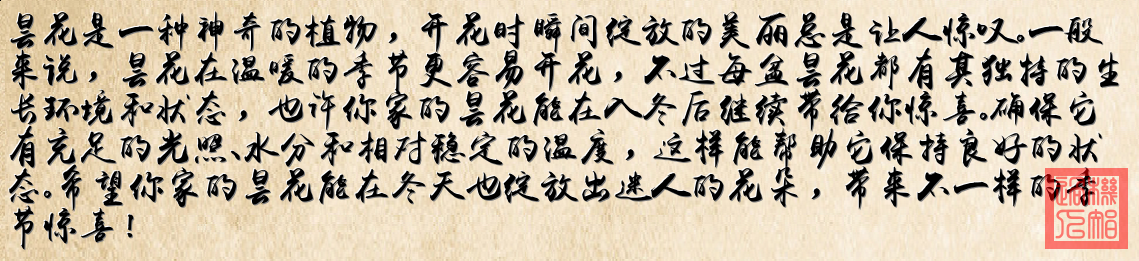 昙花是一种神奇的植物，开花时瞬间绽放的美丽总是让人惊叹。一般
来说，昙花在温暖的季节更容易开花，不过每盆昙花都有其独特的生
长环境和状态，也许你家的昙花能在入冬后继续带给你惊喜。确保它
有充足的光照、水分和相对稳定的温度，这样能帮助它保持良好的状
态。希望你家的昙花能在冬天也绽放出迷人的花朵，带来不一样的季
节惊喜！